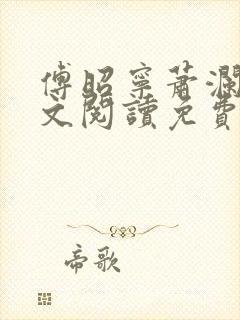 傅昭寧蕭瀾
文閱讀免費
帝歌